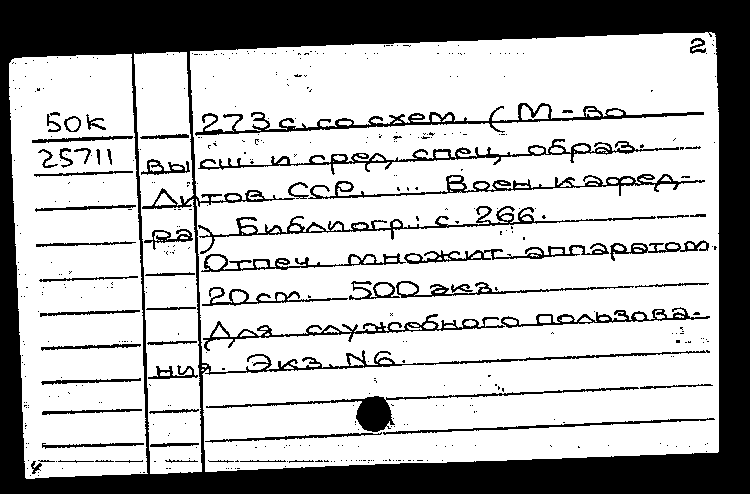 2
50К 273 с. со схем. (М-во
25711 высш. и сред. спец. образ.
Литов. ССР. ... Воен. кафед-
ра) Библиогр.: с. 266.
Отпеч. множит. аппаратом.
20 см. 500 экз.
Для служебного пользова-
ния. Экз. N6.